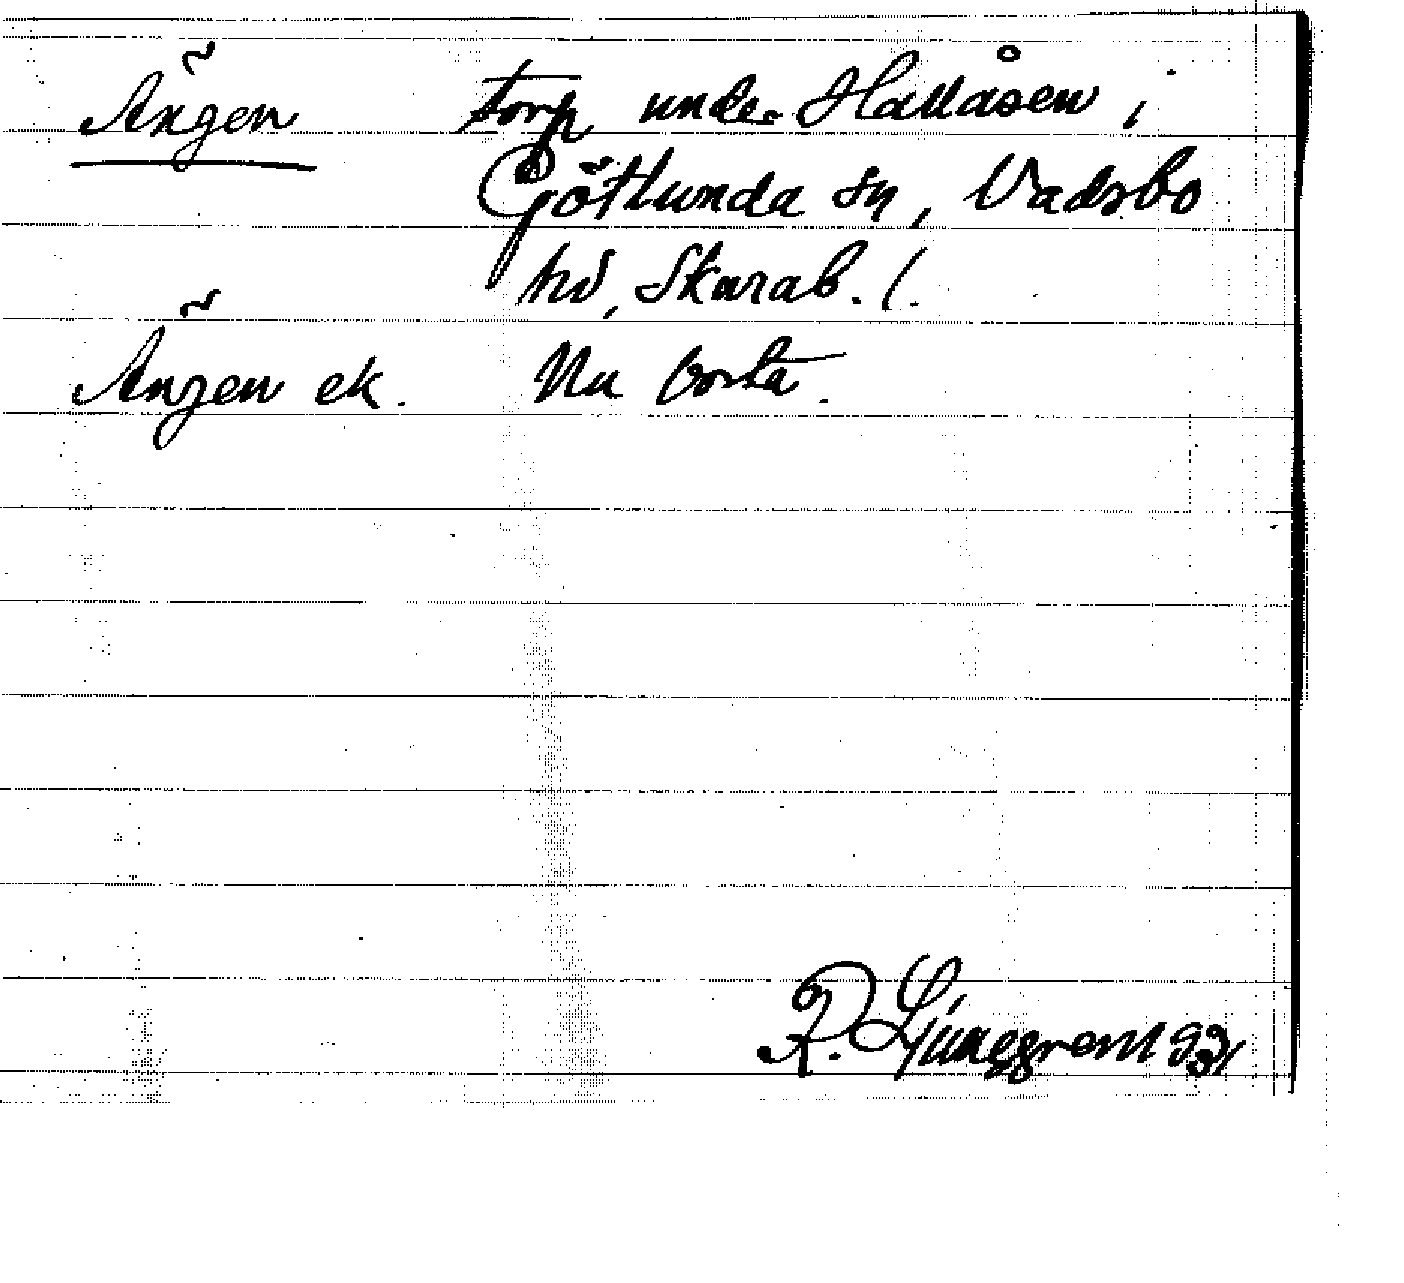 Ängen torp under Hallåsen i
Götlunda sn, Vadsbo
hd, Skarab. l.
Ängen ek. Nu borta.
R. Ljunggren 1931